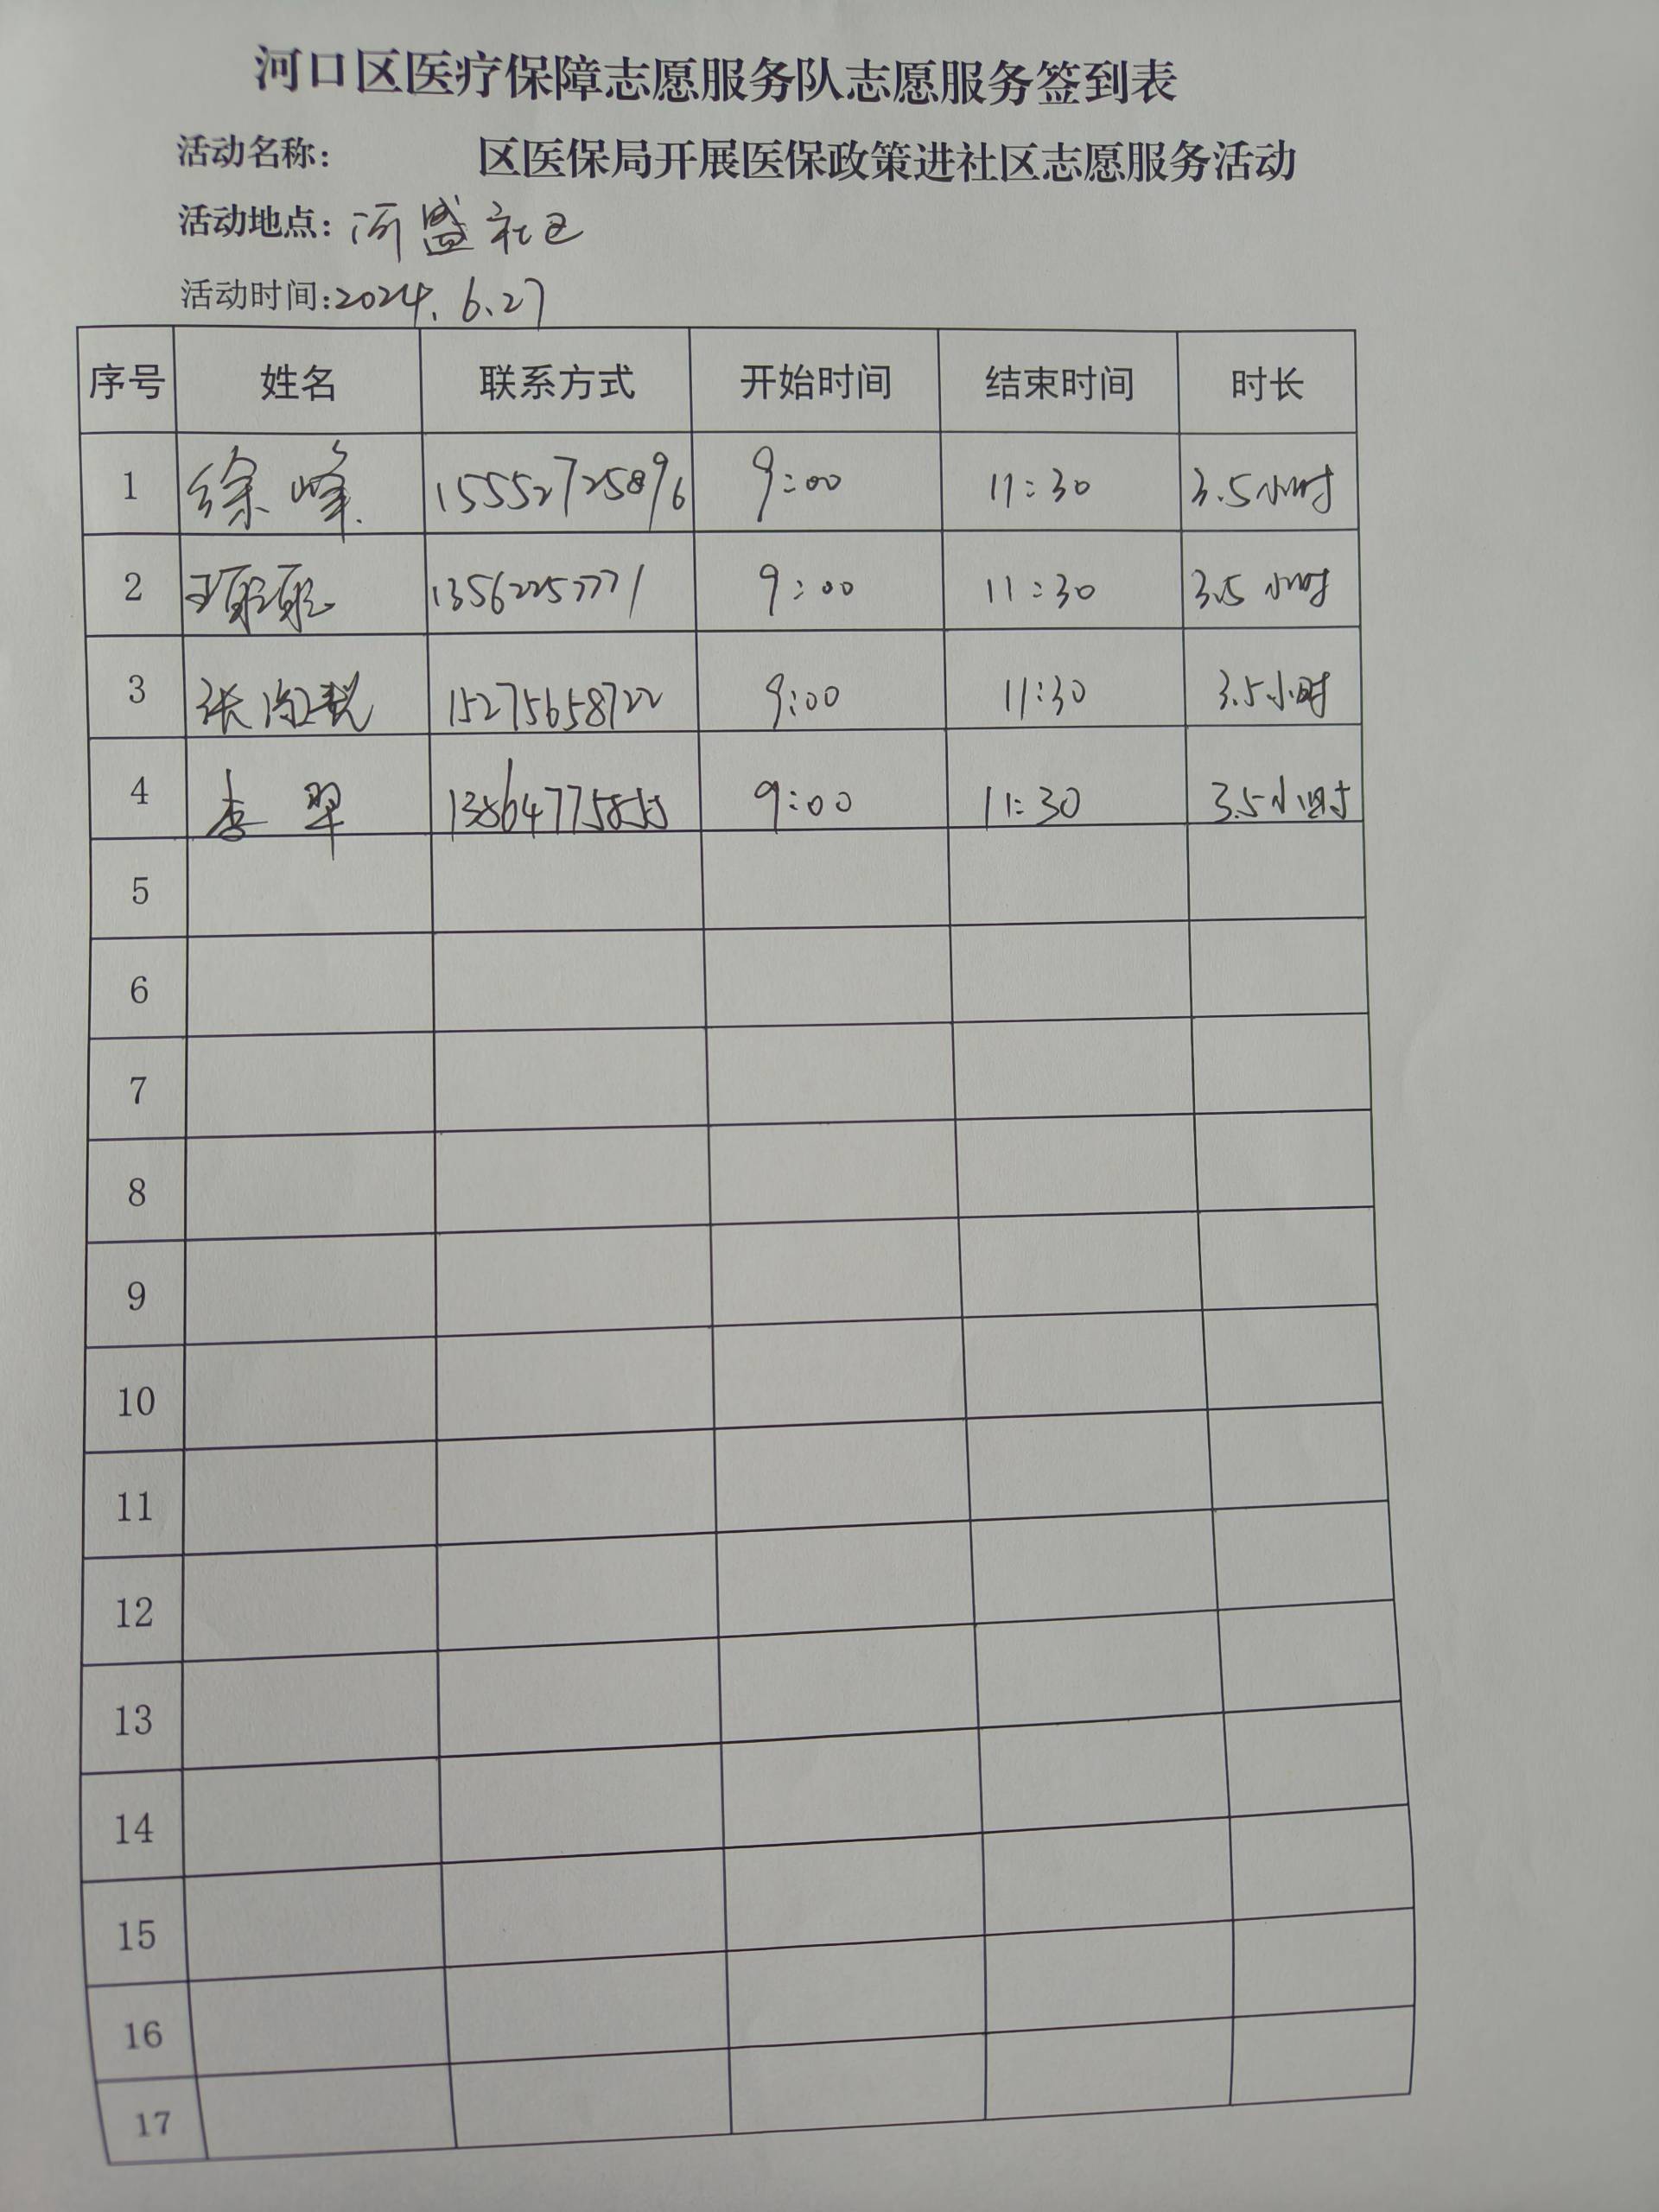 河口区医疗保障志愿服务队志愿服务签到表
活动名称: 区医保局开展医保政策进社区志愿服务活动
活动地点: 河盛社区
活动时间:2024.6.27
序号 姓名 联系方式 开始时间 结束时间 时长
1 徐峰 15552725896 9:00 11:30 3.5小时
2 王 13562257771 9:00 11:30 3.5小时
3 张 15275658722 9:00 11:30 3.5小时
4 李翠 13864775855 9:00 11:30 3.5小时
5
6
7
8
9
10
11
12
13
14
15
16
17